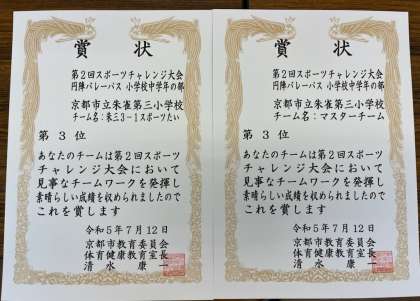 賞状
第2回スポーツチャレンジ大会
円陣バレーパス 小学校中学年の部
京都市立朱雀第三小学校
チーム名：朱三3-1スポーツたい
第3位
あなたのチームは第2回スポーツ
チャレンジ大会において
見事なチームワークを発揮し
素晴らしい成績を収められましたので
これを賞します
令和5年7月12日
京都市教育委員会
体育健康教育室長
清水康一
賞状
第2回スポーツチャレンジ大会
円陣バレーパス 小学校中学年の部
京都市立朱雀第三小学校
チーム名：マスターチーム
第3位
あなたのチームは第2回スポーツ
チャレンジ大会において
見事なチームワークを発揮し
素晴らしい成績を収められましたので
これを賞します
令和5年7月12日
京都市教育委員会
体育健康教育室長
清水康一